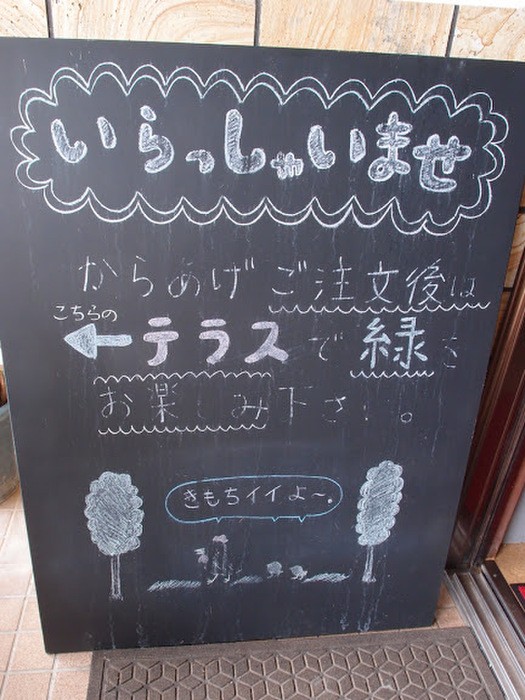 いらっしゃいませ
からあげご注文後は
こちらの
テラスで緑を
お楽しみ下さい。
きもちイイよ〜。